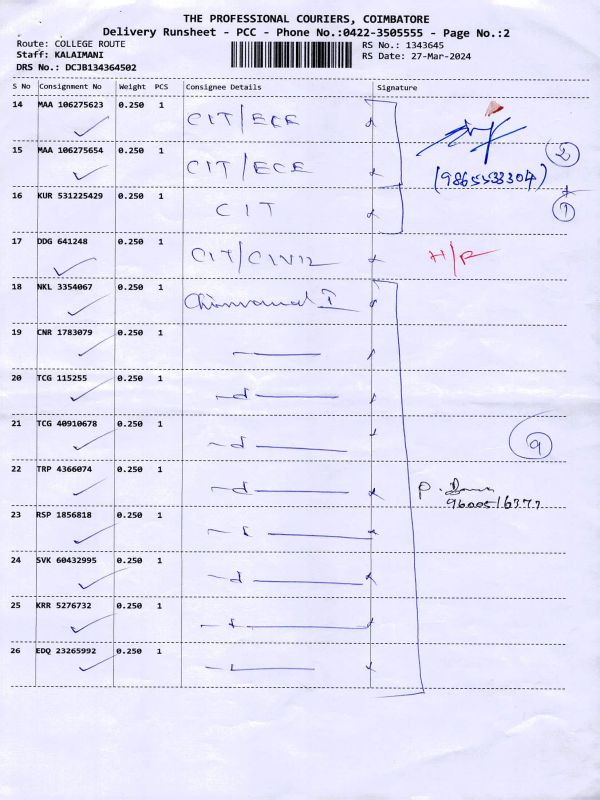 THE PROFESSIONAL COURIERS, COIMBATORE
Delivery Runsheet - PCC - Phone No.:0422-3505555 - Page No.:2
Route: COLLEGE ROUTE RS No.: 1343645
Staff: KALAIMANI RS Date: 27-Mar-2024
DRS No.: DCJB134364502
S No Consignment No Weight PCS Consignee Details Signature
14 MAA 106275623 0.250 1 CIT/ECE
15 MAA 106275654 0.250 1 CIT/ECE 2
(9865538304)
16 KUR 531225429 0.250 1 CIT 1
17 DDG 641248 0.250 1 CIT/CIVIL H/R
18 NKL 3354067 0.250 1
19 CNR 1783079 0.250 1
20 TCG 115255 0.250 1
21 TCG 40910678 0.250 1 9
22 TRP 4366074 0.250 1 P.
9600516377
23 RSP 1856818 0.250 1
24 SVK 60432995 0.250 1
25 KRR 5276732 0.250 1
26 EDQ 23265992 0.250 1